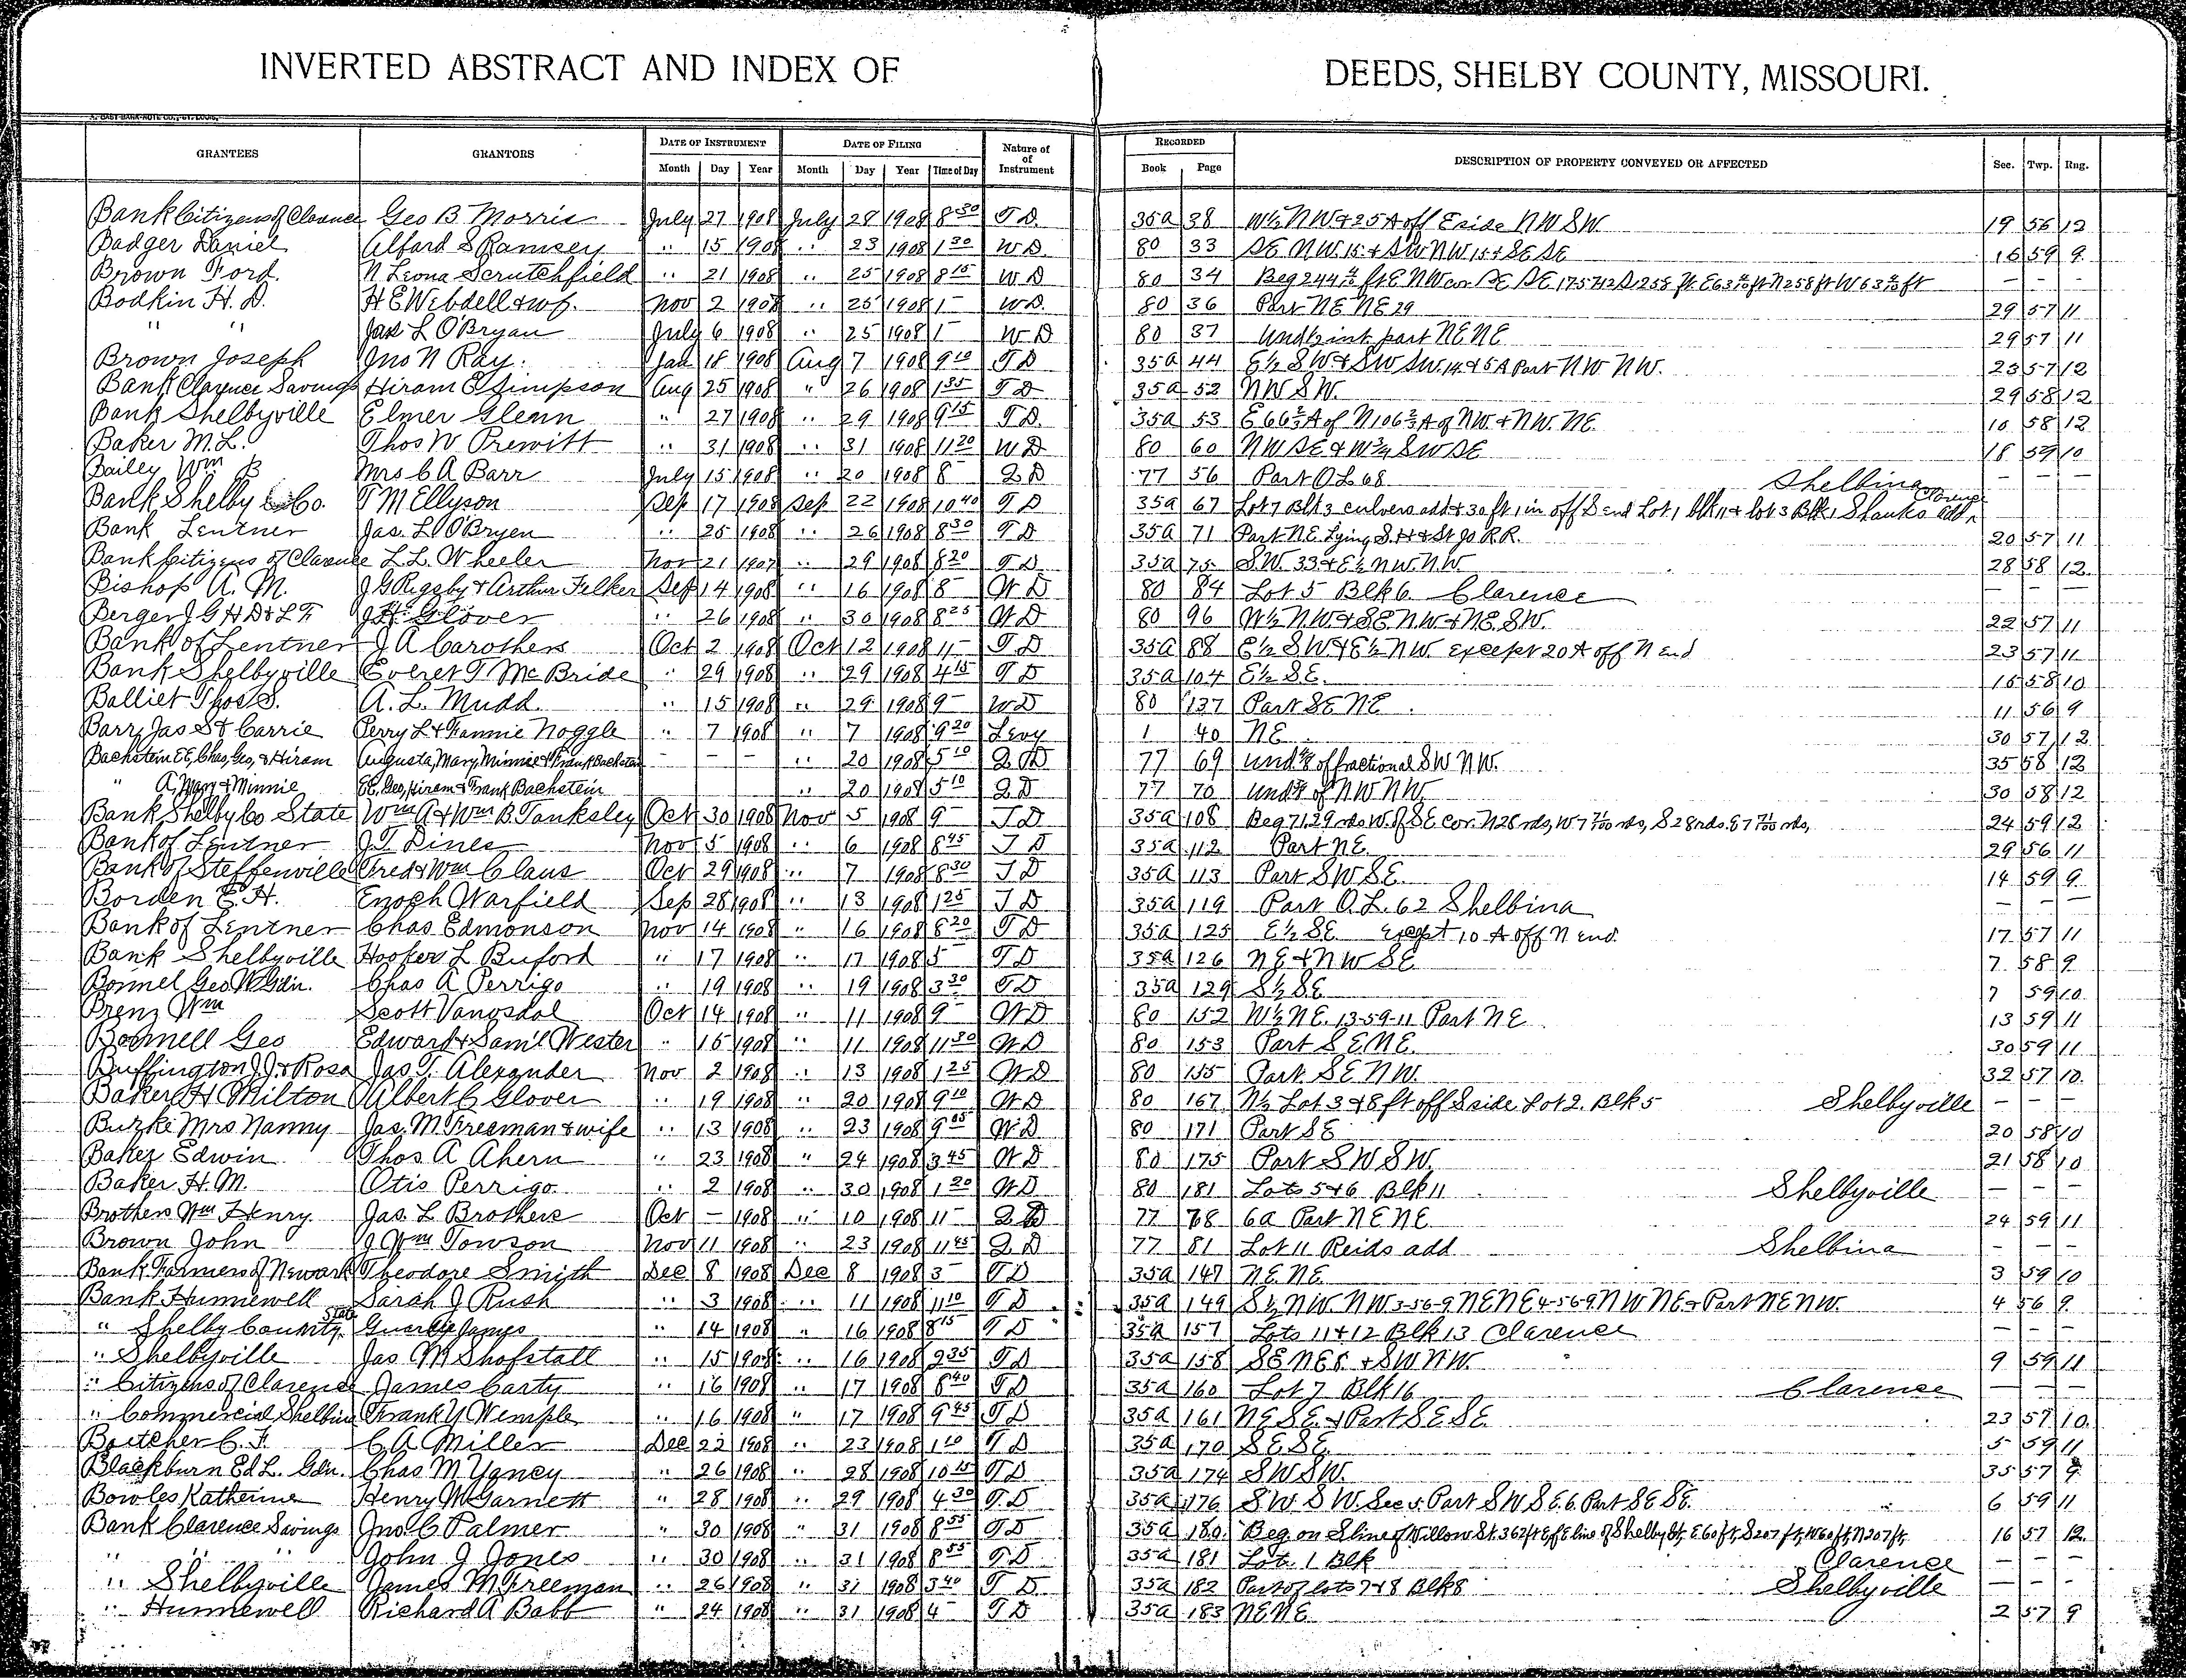 INVERTED ABSTRACT AND INDEX OF DEEDS, SHELBY COUNTY, MISSOURI.
GRANTEES GRANTORS DATE OF INSTRUMENT DATE OF FILING Nature of RECORDED DESCRIPTION OF PROPERTY CONVEYED OR AFFECTED Sec. Twp. Rng.
Month Day Year Month Day Year Time of Day of Instrument Book Page
Bank Citizens of Clarence Geo B. Morris July 27 1908 July 28 1908 8 30 T D. 35a 38 W½ NW & 25 A off E side NW SW. 19 56 12
Badger Daniel Alfard S Ramsey " 15 1908 " 23 1908 1 30 W D. 80 33 SE NW. 15 & SW NW 15 & SE SE 16 59 9
Brown Ford. N Leona Scrutchfield " 21 1908 " 25 1908 8 15 W D 80 34 Beg 244 ft E NW cor SE SE 258 ft N 258 ft W ft – – –
Bodkin H. D. H E Webdell & wf. Nov 2 1907 " 25 1908 1 – W D. 80 36 Part NE NE 29 29 57 11
" " Jas L O'Bryan July 6 1908 " 25 1908 1 – W D 80 37 Und½ int part NE NE 29 57 11
Brown Joseph Jno N Ray. Jan 18 1908 Aug 7 1908 9 10 T D 35a 44 E½ SW & SW SW. 14 & 5 A Part NW NW. 23 57 12
Bank Clarence Savings Hiram E Simpson Aug 25 1908 " 26 1908 1 35 T D 35a 52 NW SW. 29 58 12
Bank Shelbyville Elmer Glenn " 27 1908 " 29 1908 9 15 T D. 35a 53 E 66⅔ A of N 106⅔ A of NW & NW. NE 10 58 12
Baker M. L. Thos W Prewitt " 31 1908 " 31 1908 11 20 W D 80 60 NW SE & W¾ SW SE 18 59 10
Bailey Wm B Mrs C A Barr July 15 1908 " 20 1908 8 – Q D 77 56 Part O L 68 Shelbina – – –
Bank Shelby Co. T M Ellyson Sep 17 1908 Sep 22 1908 10 40 T D 35a 67 Lot 7 Blk 3 Culvers add & 30 ft 1 in off S end Lot 1 blk 11 & lot 3 Blk 1 Shanks add Clarence
Bank Lentner Jas. L O'Bryen " 25 1908 " 26 1908 8 30 T D 35a 71 Part NE Lying S. H & St Jo R.R. 20 57 11
Bank Citizens of Clarence L L. Wheeler Nov 21 1907 " 29 1908 8 20 T D. 35a 75 S.W. 33 & E½ NW. NW. 28 58 12
Bishop A. M. J G Rigsby & Arthur Felker Sep 14 1908 " 16 1908 8 – W D 80 84 Lot 5 Blk 6 Clarence – – –
Berger J G H D & L F J H. Glover " 26 1908 " 30 1908 8 25 W D 80 96 W½ NW & SE. NW & NE. SW. 22 57 11
Bank of Lentner J A Carothers Oct 2 1908 Oct 12 1908 11 – T D 35a 88 E½ SW & E½ NW. except 20 A off N end 23 57 11
Bank Shelbyville Everet T McBride " 29 1908 " 29 1908 4 15 T D 35a 104 E½ SE. 15 58 10
Balliet Thos S. A. L. Mudd. " 15 1908 " 29 1908 9 – W D 80 137 Part SE NE 11 56 9
Barr, Jas S & Carrie Perry L & Fannie Noggle " 7 1908 " 7 1908 9 20 Levy 1 40 NE 30 57 12
Bachstein EE, Chas, Geo, & Hiram Augusta, Mary, Minnie & Frank Bachstein – – – " 20 1908 5 10 Q D 77 69 of fractional SW NW. 35 58 12
" A, Mary & Minnie EE, Geo, Hiram & Frank Bachstein " 20 1908 5 10 Q D 77 70 of NW NW 30 58 12
Bank Shelby Co State Wm A & Wm B Tanksley Oct 30 1908 Nov 5 1908 9 – T D 35a 108 Beg 71.29 rds W. of SE cor. N 28 rds, W 7 1/100 rds, S 28 rds. E 7 1/100 rds, 24 59 12
Bank of Lentner J. T. Dines Nov 5 1908 " 6 1908 8 45 T D 35a 112 Part NE. 29 56 11
Bank of Steffenville Fred & Wm Claus Oct 29 1908 " 7 1908 8 30 T D 35a 113 Part SW SE 14 59 9
Borden E. H. Enoch Warfield Sep 28 1908 " 13 1908 1 25 T D 35a 119 Part O. L. 62 Shelbina – – –
Bank of Lentner Chas Edmonson Nov 14 1908 " 16 1908 8 20 T D 35a 125 E½ SE except 10 A off N end. 17 57 11
Bank Shelbyville Hooker L Buford " 17 1908 " 17 1908 5 – T D 35a 126 NE & NW SE 7 58 9
Bonnel Geo W Gdn. Chas A Perrigo " 19 1908 " 19 1908 3 30 T D 35a 129 S½ SE 7 59 10
Prenz Wm Scott Vanosdol Oct 14 1908 " 11 1908 9 – W D 80 152 W½ NE. 13-59-11 Part NE 13 59 11
Bonnell Geo Edward & Saml Wester " 15 1908 " 11 1908 11 30 W D 80 153 Part SE NE. 30 59 11
Buffington J. J. & Rosa Jas T. Alexander Nov 2 1908 " 13 1908 1 25 W D 80 155 Part SE NW. 32 57 10
Baker H Milton Albert C Glover " 19 1908 " 20 1908 9 10 W D 80 167 N½ Lot 3 & 8 ft off S side Lot 2. Blk 5 Shelbyville – – –
Buzke Mrs Nanny Jas. M Freeman & wife " 13 1908 " 23 1908 9 05 W D 80 171 Part SE 20 58 10
Baker Edwin Thos A Ahern " 23 1908 " 24 1908 3 45 W D 80 175 Part SW SW. 21 58 10
Baker H. M. Otis Perrigo " 2 1908 " 30 1908 1 20 W D 80 181 Lots 5 & 6 Blk 11 Shelbyville – – –
Brothers Wm Henry Jas L Brothers Oct – 1908 " 10 1908 11 – Q D 77 78 6a Part NE NE 24 59 11
Brown John J Wm Towson Nov 11 1908 " 23 1908 11 45 Q D 77 81 Lot 11 Reids add Shelbina – – –
Bank Farmers of Newark Theodore Smith Dec 8 1908 Dec 8 1908 3 – T D 35a 147 NE NE 3 59 10
Bank Hunnewell Sarah J Rush " 3 1908 " 11 1908 11 10 T D 35a 149 S½ NW. NW 3-56-9 NE NE 4-56-9 NW NE & Part NE NW. 4 56 9
" Shelby County State James " 14 1908 " 16 1908 8 15 T D 35a 157 Lots 11 & 12 Blk 13 Clarence – – –
" Shelbyville Jas M Shofstall " 15 1908 " 16 1908 2 35 T D 35a 158 SE NE & SW NW. 9 59 11
" Citizens of Clarence James Carty " 16 1908 " 17 1908 8 40 T D 35a 160 Lot 7 Blk 16 Clarence – – –
" Commercial Shelbina Frank Y Wemple " 16 1908 " 17 1908 9 45 T D 35a 161 NE SE. & Part SE SE 23 57 10
Boetcher C. F. C A Miller Dec 22 1908 " 23 1908 1 10 T D 35a 170 SE SE 5 59 11
Blackburn Ed L. Gdn. Chas M Yancy " 26 1908 " 28 1908 10 15 T D 35a 174 SW SW. 35 57 9
Bowles Katherine Henry M Garnett " 28 1908 " 29 1908 4 30 T. D 35a 176 SW SW. Sec 5. Part SW SE. 6. Part SE SE. 6 59 11
Bank Clarence Savings Jno. C Palmer " 30 1908 " 31 1908 8 55 T D 35a 180 Beg. on S line of Willow St. 362 ft E of E line of Shelby St, E 60 ft, S 207 ft, W 60 ft, N 207 ft, 16 57 12
" " " John J Jones " 30 1908 " 31 1908 8 55 T D 35a 181 Lot 1 Blk Clarence – – –
" Shelbyville James M Freeman " 26 1908 " 31 1908 3 40 T D. 35a 182 Part of lots 7 & 8 Blk 8 Shelbyville – – –
" Hunnewell Richard A Babb " 24 1908 " 31 1908 4 – T D 35a 183 NE NE 2 57 9